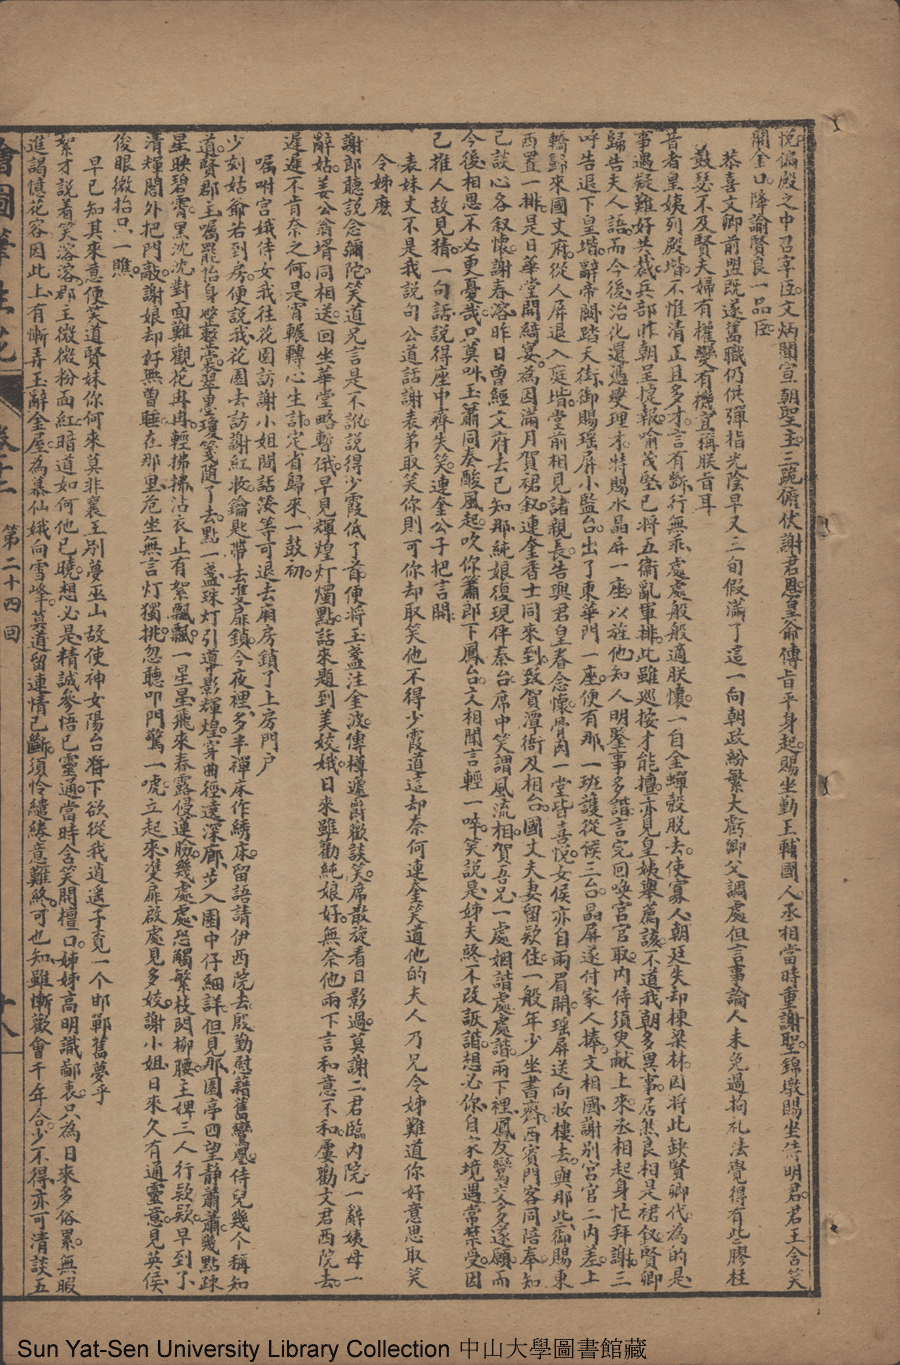 悅偏殿之中召宰臣文炳閣宣朝聖主三跪俯伏謝君恩皇爺傳旨平身起賜坐勤王輔國人丞相當時重謝聖錦墩賜坐侍明君君王含笑
開金口降諭賢良一品臣
恭喜文卿前盟既遂舊職仍供彈指光陰早又三旬假滿了這一向朝政紛繁大虧卿父調處但言事論人未免過拘礼法覺得有些膠柱
鼓瑟不及賢夫婦有權變有機宜稱朕百耳
昔者皇姨列殿堦不惟清正且多才言有斷行無乖處處般般適朕懷一自金蟬殼脫去使寡人朝廷失却棟梁林因將此缺賢卿代為的是
事遇疑難好共裁兵部昨朝呈捉報喻茂堅已將五衞亂軍排此雖巡按才能擅亦見皇姨舉薦該不道我朝多異事居然良相是裙釵賢卿
歸告夫人語而今後治化還憑燮理才特賜水晶屏一座以旌他知人明鑒事多諧言完回喚宮官取內侍須臾献上來丞相起身忙拜謝三
呼告退下皇堦辭帝闕踏天街御賜瑤屏小監台出了東華門一座便有那一班護從候三台晶屏遂付家人捧文相國謝別宮官二內差上
轎歸來國丈府從人屏退入庭堦堂前相見諸親長告與君皇眷念懷骨肉一堂皆喜悅女侯亦自兩眉開瑤屏送向妆樓去與那些御賜東
西置一排是日華堂開綺宴為因滿月賀裙釵連奎香士同來到致賀潭衙及相台國丈夫妻留欵住一般年少坐書齋西賓門客同陪奉知
己談心各叙懷謝春溶昨日曾經文府去已知那純娘復現伴秦台席中笑謂風流相賀吾兄一處姻諧處處諧兩下裡鳳友鸞交多遂願而
今後相思不必更憂哉只莫叫玉簫同奏酸風起吹你蕭郎下鳳台文相聞言輕一啐笑說是姊夫終不改詼諧想必你自家境遇常禁受因
己推人故見猜一句話說得座中齊失笑連奎公子把言開
表妹丈不是我說句公道話謝表弟取笑你則可你却取笑他不得少霞道這却奈何連奎笑道他的夫人乃兄令姊難道你好意思取笑
令姊麼
謝郎聽説念彌陀笑道兄言是不訛說得少霞低了首便將玉盞注金波傳樽遞爵歡談笑席散旋看日影過莫謝二君臨內院一辭姨母一
辭姑姜公翁壻同相送回坐華堂略暫俄早見輝煌灯燭點話來題到美姣娥日來雖勸純娘好無奈他兩下言和意不和屢勸文君西院去
遲遲不肯奈之何是宵輾轉心生計定省歸來一鼓初
嘱咐宮娥侍女我往花園訪謝小姐閒話汝等可退去廂房鎖了上房門户
少刻姑爺若到房便說我花園去訪謝紅妝鑰匙帶去雙扉鎖今夜裡多半禪床作綉床留語請伊西院去殷勤慰藉舊鸞凰侍兒幾个稱知
道賢郡主嘱罷怡身整整裳翠重瓊箋随了去點一盞珠灯引導影輝煌穿曲徑遠深廊步入園中仔細詳但見那園亭四望静蕭蕭幾點疎
星映碧霄黑沈沈對面難觀花冉冉輕拂拂沾衣止有絮飄飄一星星飛來春露侵蓮腮幾處處恐觸繁枝閃柳腰主婢三人行欵欵早到了
清輝閣外把門敲謝娘却好無曽睡在那里危坐無言灯獨挑忽聽叩門驚一唬立起來雙扉啟處見多姣謝小姐日來久有通靈意見英侯
俊眼微抬只一瞧
早已知其來意便笑道賢妹你何來莫非襄王别夢巫山故使神女陽台潛下欲從我逍遙子竟一个邯鄲舊夢乎
絮才説着笑溶溶郡王微微粉面紅暗道如何他已曉想必是精誠參悟已靈通當時含笑開檀口姊姊高明識鄙衷只為日來多俗累無暇
進謁憶花容因此上有慚弄玉辭金屋為慕仙娥向雪峰莫道留連情已斷須怜繾綣意難終可也知雖慚歡會千年合少不得亦可清談五
繪圖筆生花
第二十四回
十八
Sun Yat-Sen University Library Collection 中山大學圖書館藏